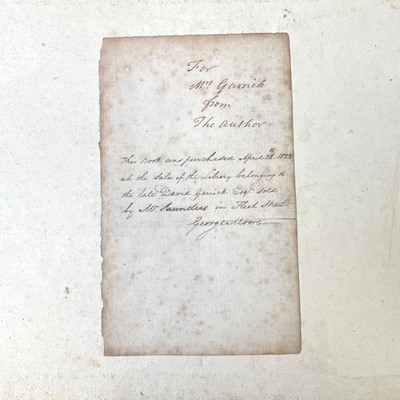 For
Mrs Garrick
from
The Author
This book was purchased April 28th 1823
at the Sale of the Library belonging to
the late David Garrick Esqr. sold
by Mr Saunders in Fleet Street.
George